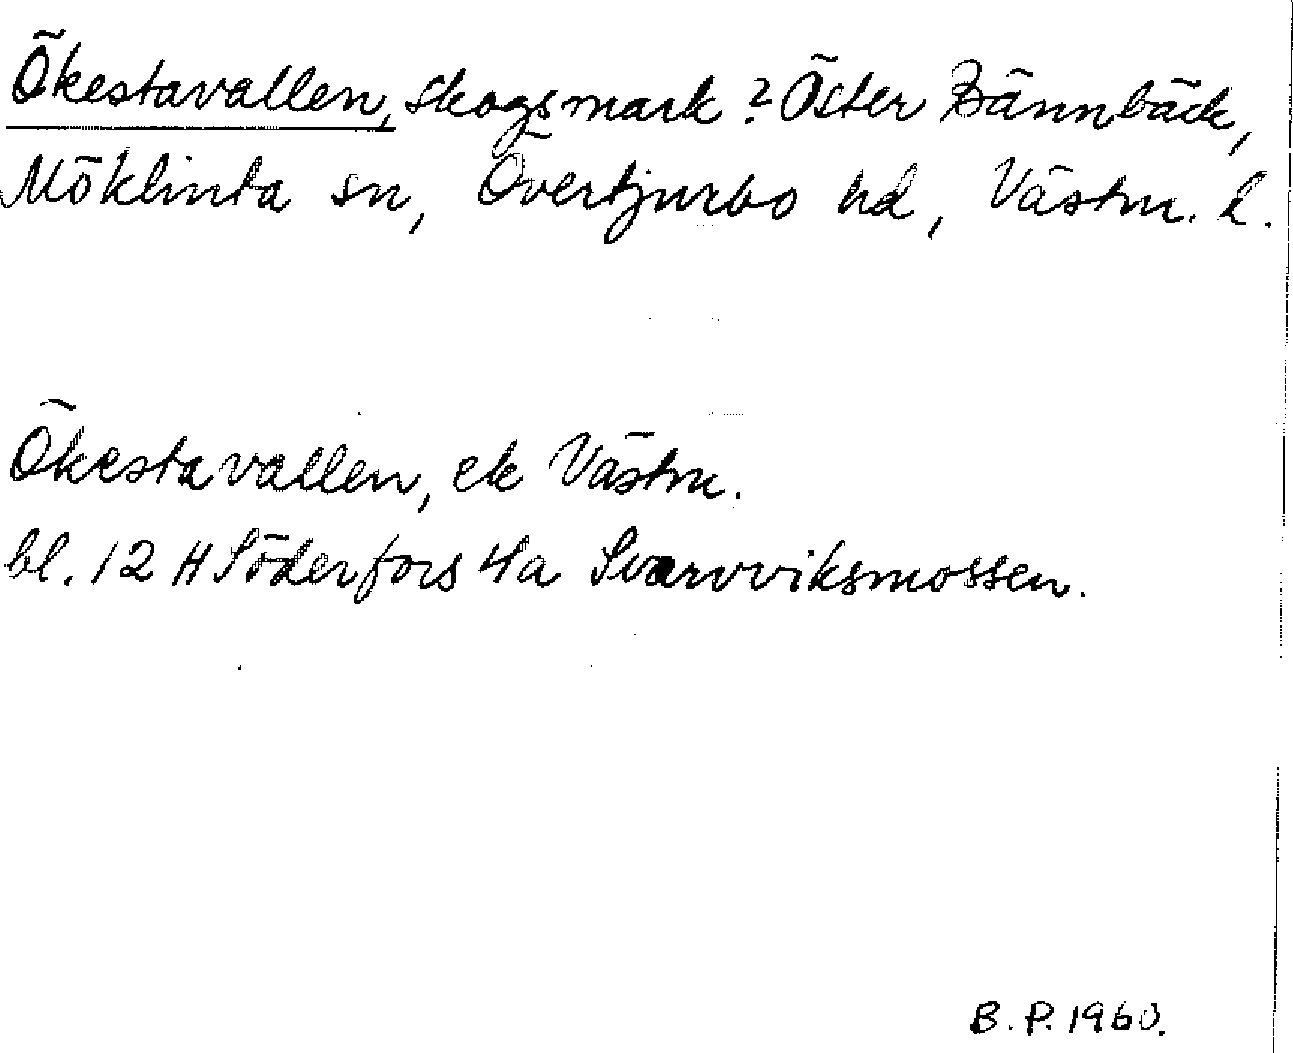 Ökestavallen, skogsmark? Öster Bännbäck,
Möklinta sn, Övertjurbo hd, Västm. l.
Ökestavallen, ek Västm.
bl. 12 H Söderfors 4a Svarvviksmossen.
B.P. 1960.